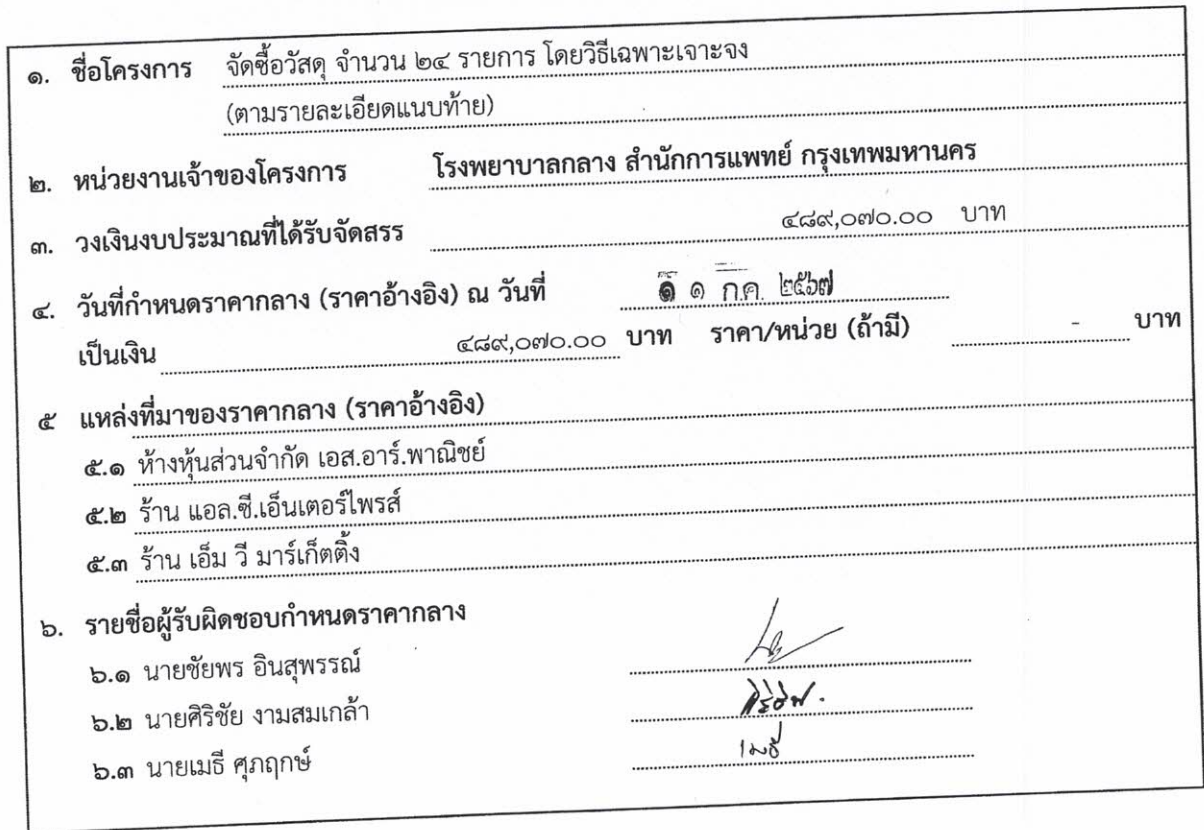 ๑. ชื่อโครงการ จัดซื้อวัสดุ จำนวน ๒๔ รายการ โดยวิธีเฉพาะเจาะจง
(ตามรายละเอียดแนบท้าย)
๒. หน่วยงานเจ้าของโครงการ โรงพยาบาลกลาง สำนักการแพทย์ กรุงเทพมหานคร
๓. วงเงินงบประมาณที่ได้รับจัดสรร ๔๘๙,๐๗๐.๐๐ บาท
๔. วันที่กำหนดราคากลาง (ราคาอ้างอิง) ณ วันที่ ๑ ๑ ก.ค. ๒๕๖๗
เป็นเงิน ๔๘๙,๐๗๐.๐๐ บาท ราคา/หน่วย (ถ้ามี) - บาท
๕ แหล่งที่มาของราคากลาง (ราคาอ้างอิง)
๕.๑ ห้างหุ้นส่วนจำกัด เอส.อาร์.พาณิชย์
๕.๒ ร้าน แอล.ซี.เอ็นเตอร์ไพรส์
๕.๓ ร้าน เอ็ม วี มาร์เก็ตติ้ง
๖. รายชื่อผู้รับผิดชอบกำหนดราคากลาง
๖.๑ นายชัยพร อินสุพรรณ์
๖.๒ นายศิริชัย งามสมเกล้า
๖.๓ นายเมธี ศุภฤกษ์ เมธี